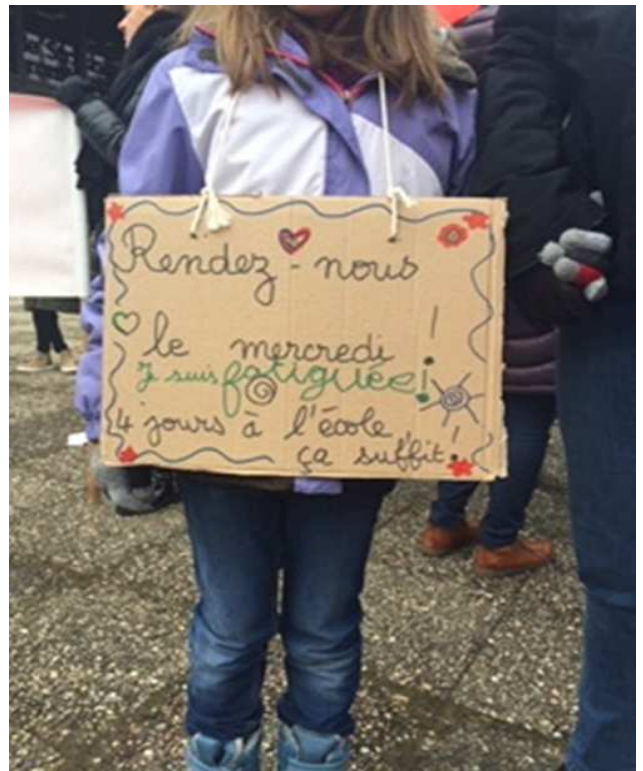 Rendez-nous
le mercredi !
Je suis fatiguée !
4 jours à l'école,
ça suffit !